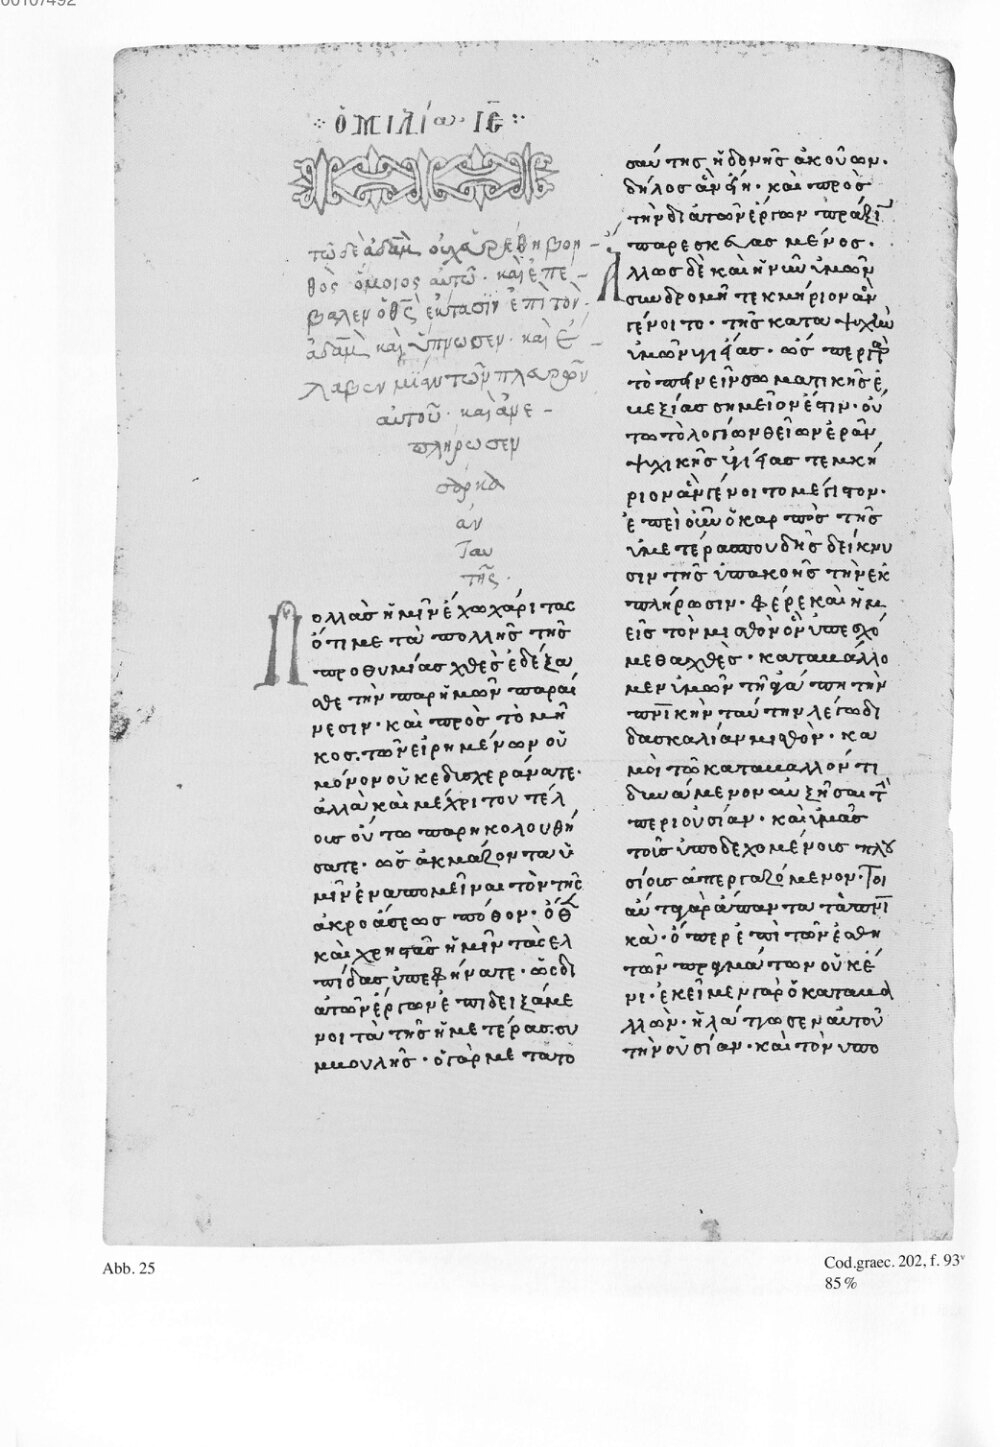 ὁμιλία ΙΕ
τῶ δὲ ἀδὰμ οὐχ εὑρέθη βοη
θὸς ὅμοιος αὐτῶ· καὶ ἐπε
βαλεν ὁ θς ἔκστασιν ἐπὶ τὸν
ἀδὰμ καὶ ὕπνωσεν· καὶ ἔ
λαβεν μίαν τῶν πλευρῶν
αὐτοῦ· καὶ ἀνε
πλήρωσεν
σάρκα
ἀν
Ταυ
τῆς·
Πολλὰς ἡμῖν ἔχω χάριτας
ὅτι μετὰ πολλῆς τῆς
προθυμίας χθὲς ἐδέξα
σθε τὴν παρ ἡμῶν παραί
νεσιν· καὶ πρὸς τὸ μῆ
κος τῶν εἰρημένων οὐ
μόνον οὐκ ἐδυσχεράνατε·
ἀλλὰ καὶ μέχρι τοῦ τέλ
ους οὕτω παρηκολουθή
σατε· ὡς ἀκμάζοντα ὑ
μῖν ἐναπομεῖναι τὸν τῆς
ἀκροάσεως πόθον· ὅθεν
καὶ χρηστὰς ἡμῖν τὰς ελ
πίδας ὑπεφήνατε· ὡς δι
ὰ τῶν ἔργων ἐπιδειξάμε
νοι τὰ τῆς ἡμετέρας συ
μβουλῆς· ὁ γὰρ μετὰ το
σαύτης ἡδονῆς ἀκούων·
δῆλος ἂν εἴη· καὶ πρὸς
τὴν διὰ τῶν ἔργων πρᾶξιν
παρεσκευασμένος·
Ἄλλως δὲ καὶ ἡ νῦν ὑμῶν
συνδρομὴ τεκμήριον ἂν
γένοιτο· τῆς κατὰ ψυχὴν
ὑμῶν ὑγιείας· ὥσπερ γὰρ
τὸ πεινεῖν σωματικῆς εὐ
μεξίας σημεῖον ἐστιν· οὕ
τω τὸ λογίων θείων ἐρᾶν
ψυχικῆς ὑγιείας τεκμή
ριον ἂν γένοιτο μέγιστον·
ἐπεὶ οὖν ὁ καρπὸς τῆς
ὑμετέρας σπουδῆς δείκνυ
σιν τῆς ὑπακοῆς τὴν ἐκ
πλήρωσιν· φέρε καὶ ἡμ
εῖς τὸν μισθὸν ὃν ὑπεσχό
μεθα χθὲς· καταβάλλο
μεν ὑμῶν τῇ ἀγάπῃ τὴν
πνικὴν ταύτην λέγω δι
δασκαλίαν μισθὸν· κα
μοὶ τῶ καταβαλλόντι
δυνάμενον αὐξῆσαι τὴν
περιουσίαν· καὶ ὑμᾶς
τοῖς ὑποδεχομένοις πλου
σίοις ἀπεργαζόμενον· Τοι
αῦτα γὰρ ἅπαντα τὰ πνι
κὰ· ὅπερ ἐπὶ τῶν αἰσθη
τῶν πραγμάτων οὐκ ἔ
νι· ἐκεῖ μεν γὰρ ὁ καταβα
λλὼν· ἠλάττωσεν αὐτοῦ
τὴν οὐσίαν· καὶ τὸν ὑπο
Abb. 25
Cod.graec. 202, f. 93v
85%